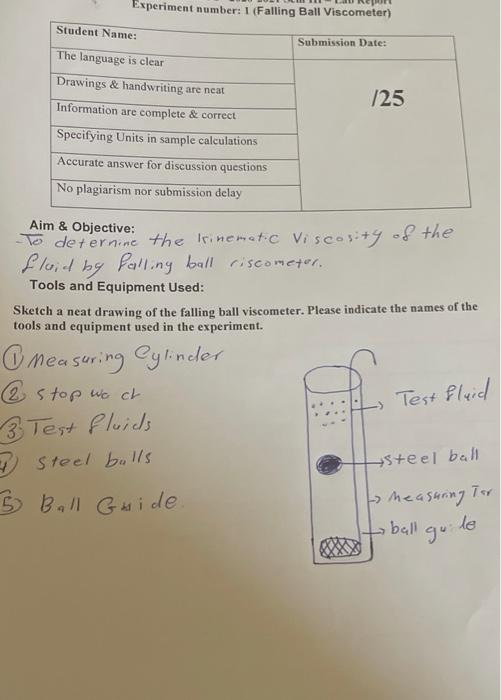 Experiment number: 1 (Falling Ball Viscometer)
Student Name:
Submission Date:
The language is clear
Drawings & handwriting are neat
Information are complete & correct
/25
Specifying Units in sample calculations
Accurate answer for discussion questions
No plagiarism nor submission delay
Aim & Objective:
- To deternine the kinematic Viscosity of the
fluid by falling ball viscometer.
Tools and Equipment Used:
Sketch a neat drawing of the falling ball viscometer. Please indicate the names of the
tools and equipment used in the experiment.
① Measuring Cylinder
② stop
③ Test fluids
④ steel balls
⑤ Ball Guide
Test fluid
steel ball
Measuring
ball guide